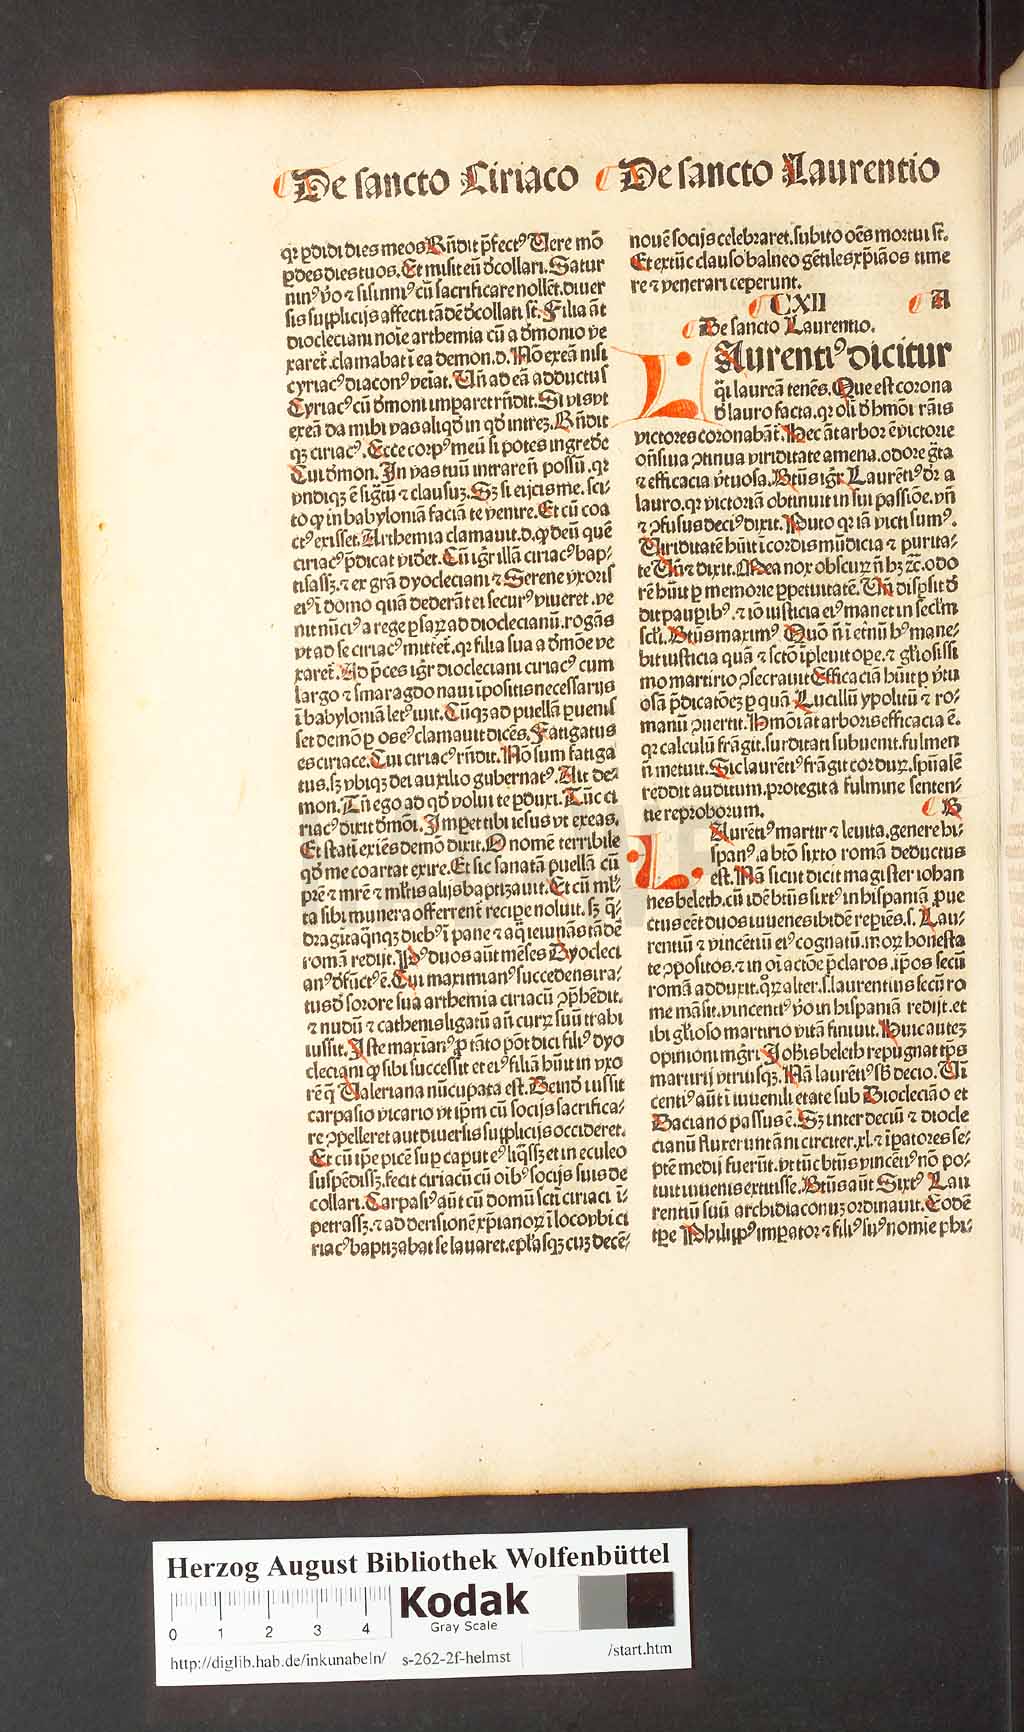 De sancto Ciriaco De sancto Laurentio
qr ꝑdidi dies meos Rñdit p̄fectꝰ Uere mō
ꝑdes dies tuos. Et misit eū d̄collari. Satur
ninꝰ ṽo ⁊ sisinniꝰ cū sacrificare nollēt. diuer
sis supplicijs affecti tādē d̄collati st̄. Filia āt
diocleciani noīe arthemia cū a d̄monio ve
xaret̄. clamabat ī ea demon. d. Nō exeā nisi
cyriacꝰ diaconꝰ veīat. Uñ ad eā adductus
Cyriacꝰ cū d̄moni imꝑaret rñdit. Si vis vt
exeā da mihi vas aliqd̄ in qd̄ intrez. Rñdit
qz ciriacꝰ. Ecce corpꝰ meū si potes ingrede
Cui d̄mon. In vas tuū intrareñ possū. qr
vndiqz ē sigtū ⁊ clausuz. Sz si eijcis me. sci-
to ꝙ in babyloniā faciā te venire. Et cū coa
ctꝰ exisset. Arthemia clamauit. d. ꝙ deū quē
ciriacꝰ p̄dicat vidēt. Cū igr̄ illā ciriacꝰ bap-
tisassz. ⁊ ex grā dyocleciani ⁊ Serene vxoris
eiꝰ ī domo quā dederāt ei securꝰ viueret. ve
nit nūciꝰ a rege ꝑsaꝝ ad dioclecianū. rogās
vt ad se ciriacꝰ mittet̄. qr filia sua a d̄mōe ve
xaret̄. Ad p̄ces igr̄ diocleciani ciriacꝰ cum
largo ⁊ smaragdo naui īpositis necessarijs
ī babyloniā letꝰ iuit. Cūqz ad puellā ꝑuenis
set demō ꝑ os eꝰ clamauit dicēs. Fatigatus
es ciriace. Cui ciriacꝰ rñdit. Nō sum fatiga
tus. sz vbiqz dei auxilio gubernatꝰ. Ait de-
mon. Tñ ego ad qd̄ volui te ꝑduxi. Tūc ci
riacꝰ dixit d̄mōi. Imꝑet tibi iesus vt exeas.
Et statī exiēs demō dixit. O nomē terribile
qd̄ me coartat exire. Et sic sanatā puellā cū
pr̄e ⁊ mr̄e ⁊ mltis alijs baptizauit. Et cū ml-
ta sibi munera offerrent̄ recipe noluit. sz q̄-
dragīta qnqz diebꝰ ī pane ⁊ aq̄ ieiunās tādē
romā redijt. Pꝰ duos aūt mēses Dyocleci
anꝰ d̄fūctꝰ ē. Cui maximianꝰ succedens ira-
tus d̄ sorore sua arthemia ciriacū ꝓphēdit.
⁊ nudū ⁊ cathenis ligatū añ curꝝ suū trahi
iussit. Iste maxīanꝰ ꝓ tāto pōt dici filiꝰ dyo
cleciani ꝙ sibi successit et eiꝰ filiā hūit in vxo
rē q̄ Valeriana nūcupata est. Deinđ iussit
carpasio vicario vt ip̄m cū socijs sacrifica-
re ꝯpelleret aut diuersis supplicijs occideret.
Et cū ip̄e picē suꝑ caput eꝰ liqssz et in eculeo
suspēdissz. fecit ciriacū cū oībꝰ socijs suis de
collari. Carpasiꝰ aūt cū domū scti ciriaci ī-
petrassz. ⁊ ad derisionē xp̄ianoꝝ ī loco vbi ci
riacꝰ baptizabat se lauaret. epl̄asqz cuz decē-
nouē socijs celebraret. subito oēs mortui st̄.
Et extūc clauso balneo gētiles xp̄iāos time
re ⁊ venerari ceperunt.
CXII A
De sancto Laurentio.
LAurentiꝰ dicitur
q̄si laureā tenēs. Que est corona
d̄ lauro facta. qr olī d̄ hmōi rāis
victores coronabāt. Hec āt arbor ē victorie
oñsiua ꝯtinua viriditate amena. odore grāta
⁊ efficacia v̄tuosa. Btūs igr̄ Laurētiꝰ dr̄ a
lauro. qr victoriā obtinuit in sui passiōe. vñ
⁊ ꝯfusus deciꝰ dixit. Puto qr iā victi sumꝰ.
Uiriditatē hūit ī cordis mūdicia ⁊ purita-
te Uñ ⁊ dixit. Mea nox obscuꝝ ñ hz ⁊c. odo
rē hūit ꝑ memorie ꝑpetuitatē. Uñ disꝑsit d̄
dit pauꝑibꝰ. ⁊ iō iusticia eiꝰ manet in seclm̄
scl̄i. Btūs maximꝰ Quō ñ ī etnū hꝰ mane-
bit iusticia quā ⁊ sctō īpleuit oꝑe. ⁊ gl̄iosissi
mo martirio ꝯsecrauit Efficaciā hūit ꝑ v̄tu
osā p̄dicatōez ꝑ quā Lucillū ypolitū ⁊ ro-
manū ꝯuertit. Hmōi āt arboris efficacia ē.
qr calculū frāgit. surditati subuenit. fulmen
ñ metuit. Sic laurētiꝰ frāgit cor duꝝ. spūalē
reddit auditum. protegit a fulmine senten-
tie reproborum. B
LAurētiꝰ martir ⁊ leuita. genere hi-
spanꝰ. a btō sixto romā deductus
est. Nā sicut dicit magister iohan
nes beleth. cū idē btūs sixtꝰ in hispaniā ꝓue
ctus eēt duos iuuenes ibidē reꝑiēs. s. Lau-
rentiū ⁊ vincētiū eiꝰ cognatū. moꝝ honesta
te ꝯpositos. ⁊ in oī actōe p̄claros. ip̄os secū
romā adduxit. qꝝ alter. s. laurentius secū ro
me māsit. vincentiꝰ ṽo in hispaniā redijt. et
ibi gl̄ioso martirio vitā finiuit. Huic autez
opinioni mgr̄i Johīs beleth repugnat tp̄s
martirij vtriusqz. Nā laurētiꝰ sb̄ decio. Ui
centiꝰ aūt ī iuuenili etate sub Diocleciāo et
Daciano passus ē. Sz inter deciū ⁊ diocle
cianū fluxerunt āni circiter. xl. ⁊ īpatores se-
ptē medij fuerūt. vt tūc btūs vincētiꝰ nō po-
tuit iuuenis extitisse. Btūs aūt Sixtꝰ Lau
rentiū suū archidiaconuz ordinauit. Eodē
tꝑe Philippꝰ imꝑator ⁊ filiꝰ suꝰ nomīe phi-
Herzog August Bibliothek Wolfenbüttel
Kodak
Gray Scale
0 1 2 3 4
http://diglib.hab.de/inkunabeln/ s-262-2f-helmst /start.htm